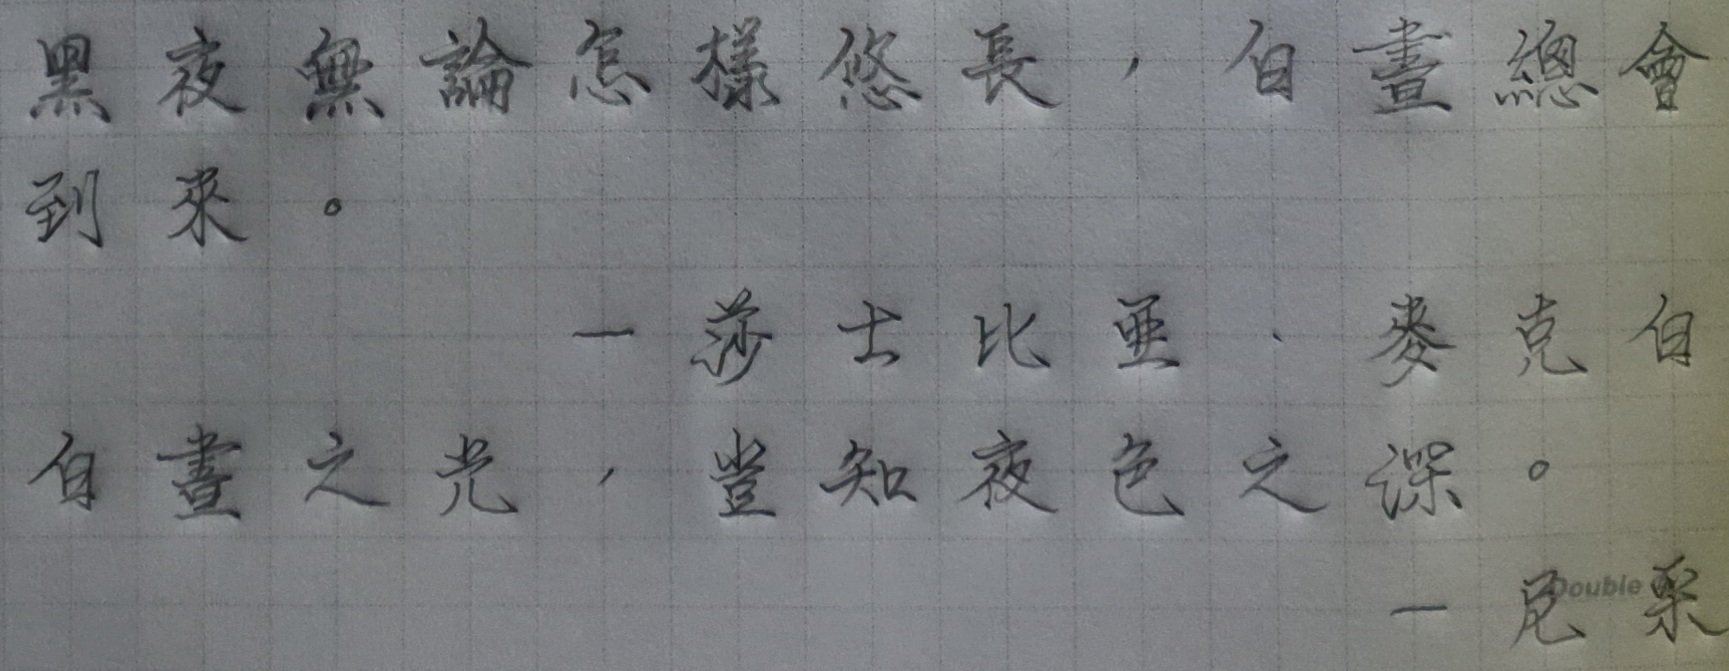 黑夜無論怎樣悠長，白晝總會
到來。
一莎士比亞．麥克白
白晝之光，豈知夜色之深。
一尼采
Double